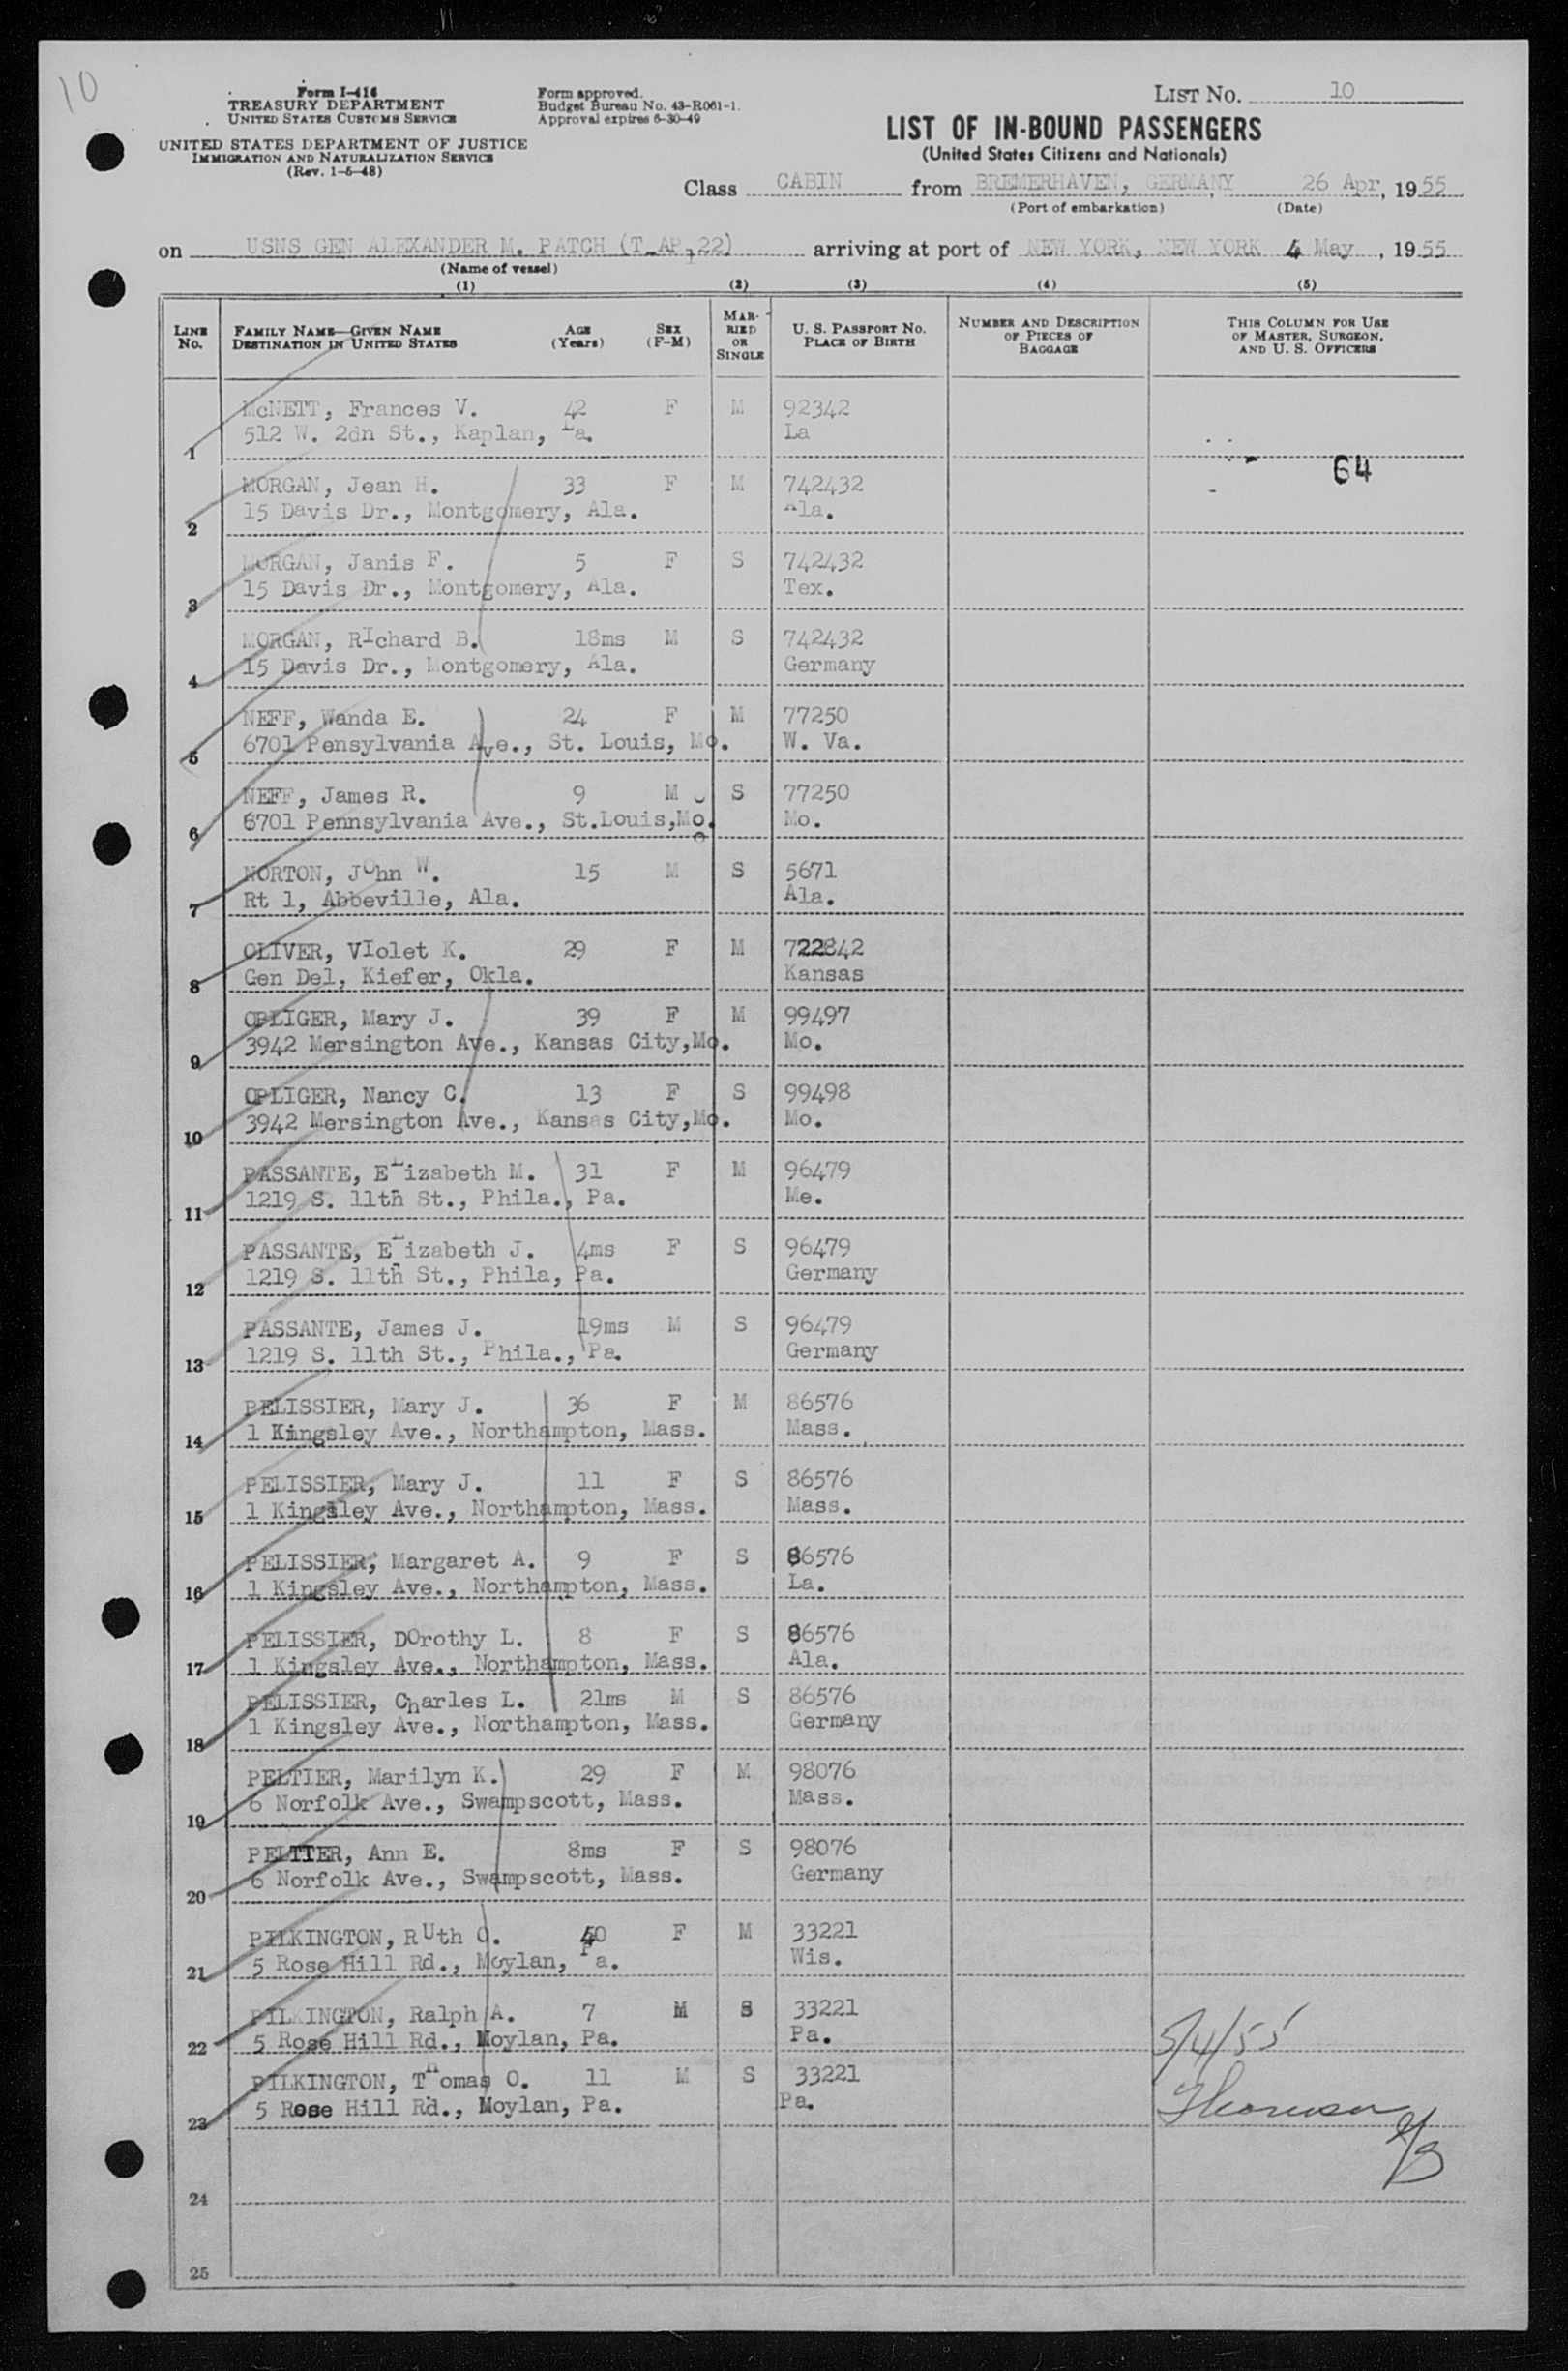 10
Form I-416
TREASURY DEPARTMENT
UNITED STATES CUSTOMS SERVICE
UNITED STATES DEPARTMENT OF JUSTICE
IMMIGRATION AND NATURALIZATION SERVICE
(Rev. 1-5-48)
Form approved.
Budget Bureau No. 43-R061-1.
Approval expires 6-30-49
LIST NO. 10
LIST OF IN-BOUND PASSENGERS
(United States Citizens and Nationals)
Class CABIN from BREMERHAVEN, GERMANY, 26 Apr, 1955
(Port of embarkation) (Date)
on USNS GEN ALEXANDER M. PATCH (T-AP-22) arriving at port of NEW YORK, NEW YORK 4 May, 1955
(Name of vessel)
(1) (2) (3) (4) (5)
LINE NO. FAMILY NAME—GIVEN NAME DESTINATION IN UNITED STATES AGE (Years) SEX (F-M) MARRIED OR SINGLE U. S. PASSPORT NO. PLACE OF BIRTH NUMBER AND DESCRIPTION OF PIECES OF BAGGAGE THIS COLUMN FOR USE OF MASTER, SURGEON, AND U. S. OFFICERS
McNETT, Frances V. 42 F M 92342
1 512 W. 2dn St., Kaplan, La. La
64
MORGAN, Jean H. 33 F M 742432
2 15 Davis Dr., Montgomery, Ala. Ala.
MORGAN, Janis F. 5 F S 742432
3 15 Davis Dr., Montgomery, Ala. Tex.
MORGAN, RIchard B. 18ms M S 742432
4 15 Davis Dr., Montgomery, Ala. Germany
NEFF, Wanda E. 24 F M 77250
5 6701 Pensylvania Ave., St. Louis, Mo. W. Va.
NEFF, James R. 9 M S 77250
6 6701 Pennsylvania Ave., St.Louis,Mo. Mo.
NORTON, JOhn W. 15 M S 5671
7 Rt 1, Abbeville, Ala. Ala.
OLIVER, VIolet K. 29 F M 722842
8 Gen Del, Kiefer, Okla. Kansas
OPLIGER, Mary J. 39 F M 99497
9 3942 Mersington Ave., Kansas City,Mo. Mo.
OPLIGER, Nancy C. 13 F S 99498
10 3942 Mersington Ave., Kansas City,Mo. Mo.
PASSANTE, ELizabeth M. 31 F M 96479
11 1219 S. 11th St., Phila., Pa. Me.
PASSANTE, ELizabeth J. 4ms F S 96479
12 1219 S. 11th St., Phila, Pa. Germany
PASSANTE, James J. 19ms M S 96479
13 1219 S. 11th St., Phila., Pa. Germany
PELISSIER, Mary J. 36 F M 86576
14 1 Kingsley Ave., Northampton, Mass. Mass.
PELISSIER, Mary J. 11 F S 86576
15 1 Kingsley Ave., Northampton, Mass. Mass.
PELISSIER, Margaret A. 9 F S 86576
16 1 Kingsley Ave., Northampton, Mass. La.
PELISSIER, DOrothy L. 8 F S 86576
17 1 Kingsley Ave., Northampton, Mass. Ala.
PELISSIER, Charles L. 21ms M S 86576
18 1 Kingsley Ave., Northampton, Mass. Germany
PELTIER, Marilyn K. 29 F M 98076
19 6 Norfolk Ave., Swampscott, Mass. Mass.
PELTIER, Ann E. 8ms F S 98076
20 6 Norfolk Ave., Swampscott, Mass. Germany
PILKINGTON, RUth O. 40 F M 33221
21 5 Rose Hill Rd., Moylan, Pa. Wis.
PILKINGTON, Ralph A. 7 M S 33221
22 5 Rose Hill Rd., Moylan, Pa. Pa.
5/4/55
PILKINGTON, THomas O. 11 M S 33221
23 5 Rose Hill Rd., Moylan, Pa. Pa.
24
25